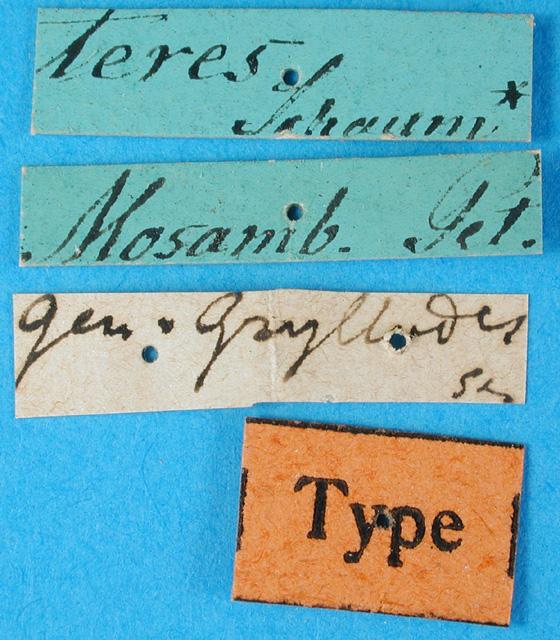 teres.
Schaum*
Mosamb. Pet.
gen. Gryllodes
Type